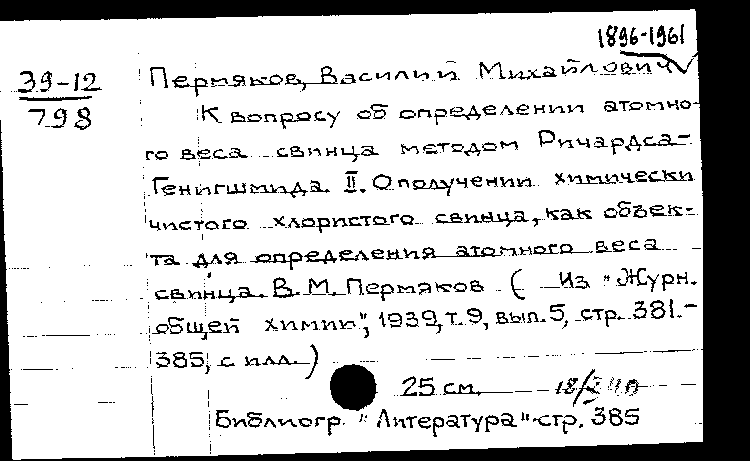 1896-1961
39-12
798
Пермяков, Василий Михайлович
К вопросу об определении атомно-
го веса свинца методом Ричардса-
Генигшмида. II. О получении химически
чистого хлористого свинца, как объек-
та для определения атомного веса
свинца. В. М. Пермяков ( Из "Журн.
общей химии", 1939, т. 9, вып. 5, стр. 381.-
385, с илл. )
25 см.
Библиогр. "Литература" стр. 385